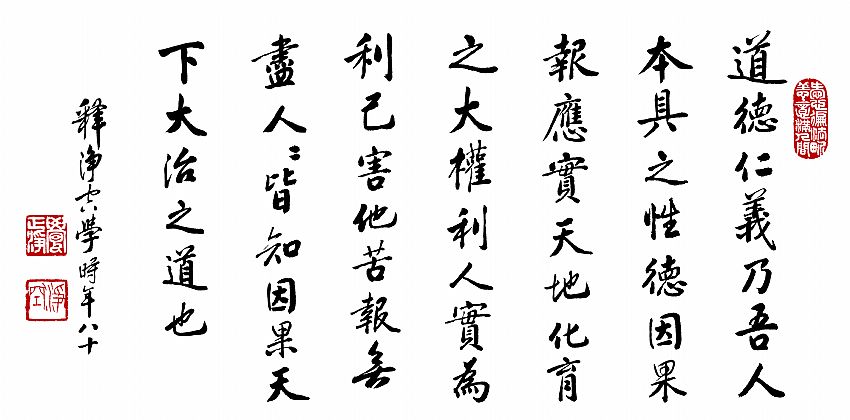 道德仁義乃吾人
本具之性德因果
報應實天地化育
之大權利人實為
利己害他苦報無
盡人〻皆知因果天
下大治之道也
釋淨空學時年八十
淨空